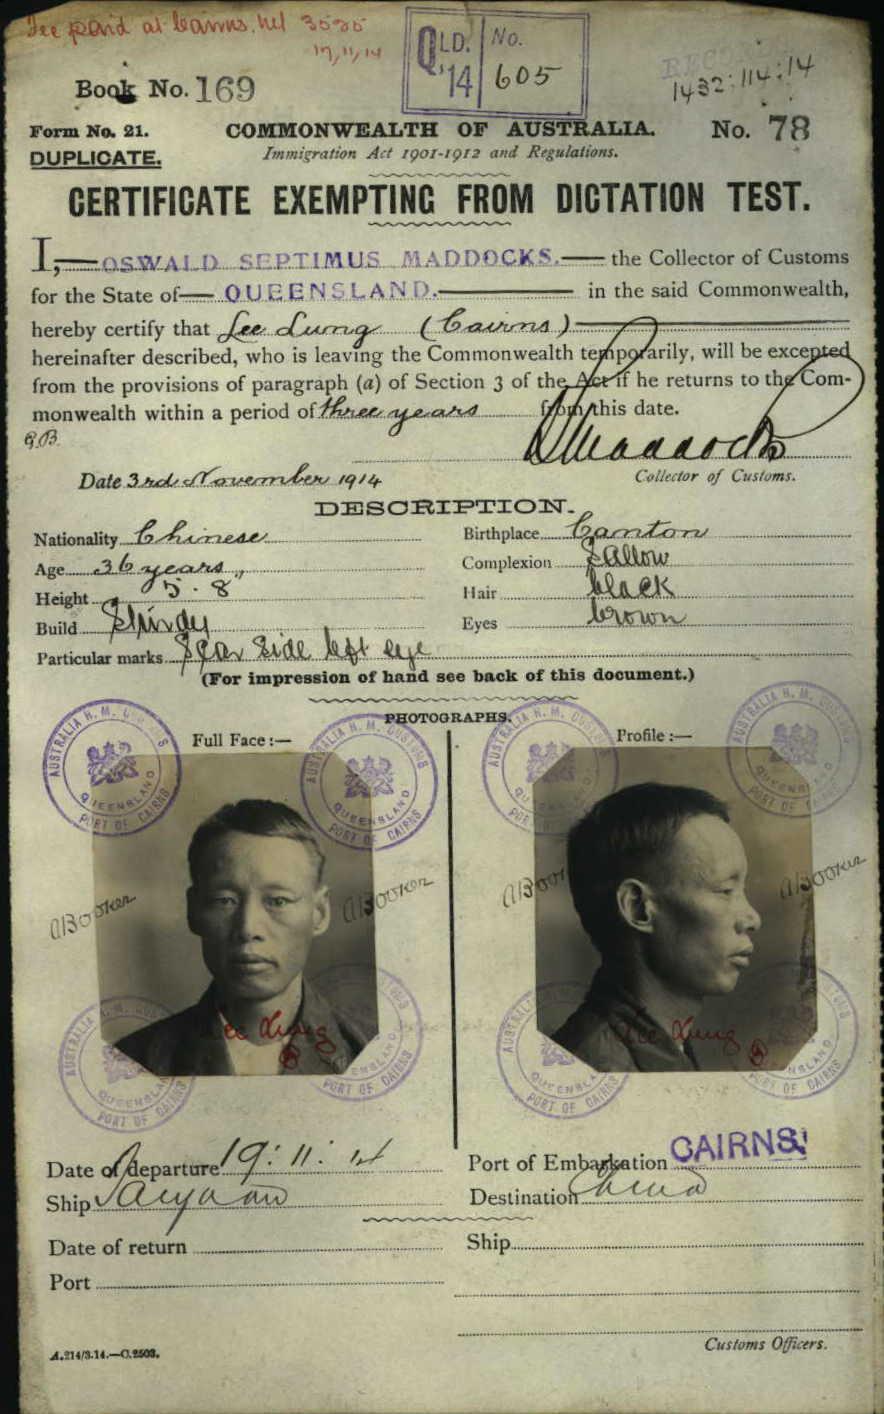 Fee paid at Cairns.
17/11/14
QLD. No.
'14 605
1432:114:14
Book No. 169
Form No. 21. COMMONWEALTH OF AUSTRALIA. No. 78
DUPLICATE. Immigration Act 1901-1912 and Regulations.
CERTIFICATE EXEMPTING FROM DICTATION TEST.
I, OSWALD SEPTIMUS MADDOCKS. the Collector of Customs
for the State of QUEENSLAND. in the said Commonwealth,
hereby certify that Lee Lung (Cairns)
hereinafter described, who is leaving the Commonwealth temporarily, will be excepted
from the provisions of paragraph (a) of Section 3 of the Act if he returns to the Com-
monwealth within a period of three years from this date.
Date 3rd November 1914 Collector of Customs.
DESCRIPTION.
Nationality Chinese Birthplace Canton
Age 36 years Complexion Sallow
Height 5.8" Hair black
Build Eyes brown
Particular marks Scar side left eye
(For impression of hand see back of this document.)
PHOTOGRAPHS.
Full Face:— Profile:—
AUSTRALIA H.M. CUSTOMS QUEENSLAND PORT OF CAIRNS
AUSTRALIA H.M. CUSTOMS QUEENSLAND PORT OF CAIRNS
AUSTRALIA H.M. CUSTOMS
AUSTRALIA H.M. CUSTOMS QUEENSLAND PORT OF CAIRNS
ABooker ABooker ABooker ABooker
Lee Lung Lee Lung
AUSTRALIA H.M. QUEENSLAND PORT OF CAIRNS
CUSTOMS QUEENSLAND PORT OF CAIRNS
AUSTRALIA QUEENSLAND PORT OF CAIRNS
CUSTOMS QUEENSLAND PORT OF CAIRNS
Date of departure 19:11:14 Port of Embarkation CAIRNS.
Ship Destination China
Date of return Ship
Port
Customs Officers.
A.214/3.14.—C.2503.